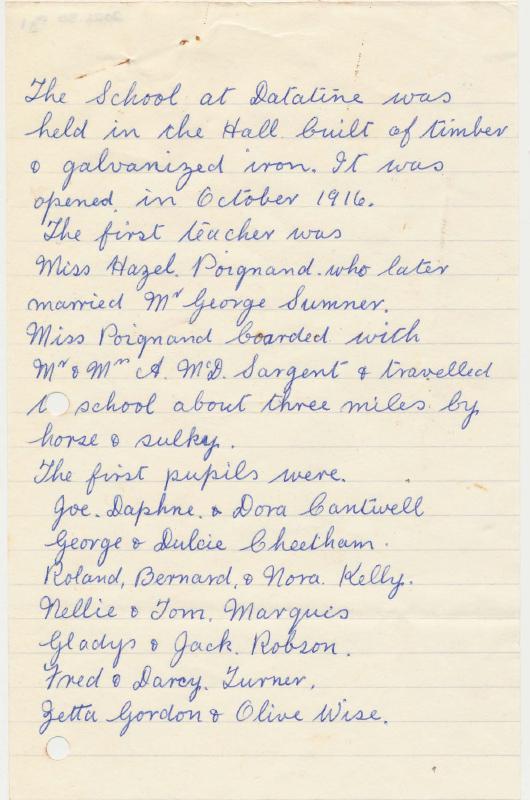 The School at Datatine was
held in the Hall built of timber
& galvanized iron. It was
opened in October 1916.
The first teacher was
Miss Hazel. Poignand. who later
married Mr George Sumner.
Miss Poignand boarded with
Mr & Mrs A. McD. Sargent & travelled
t school about three miles by
horse & sulky.
The first pupils were.
Joe. Daphne. & Dora Cantwell
George & Dulcie Cheetham.
Roland, Bernard, & Nora. Kelly.
Nellie & Tom. Marquis
Gladys & Jack. Robson.
Fred & Darcy. Turner.
Zetta Gordon & Olive Wise.